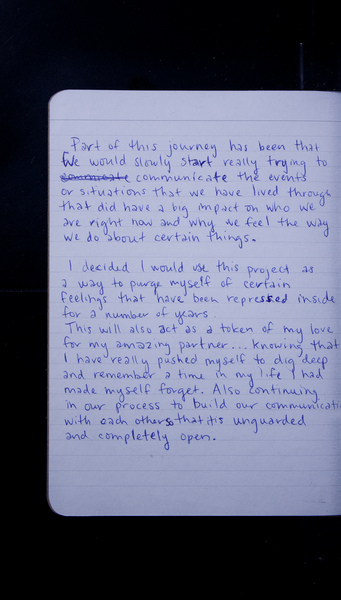 Part of this journey has been that
We would slowly start really trying to
communicate the events
or situations that we have lived through
that did have a big impact on who we
are right now and why we feel the way
we do about certain things.
I decided I would use this project as
a way to purge myself of certain
feelings that have been repressed inside
for a number of years.
This will also act as a token of my love
for my amazing partner... knowing that
I have really pushed myself to dig deep
and remember a time in my life I had
made myself forget. Also continuing
in our process to build our communicati
with each others that is unguarded
and completely open.